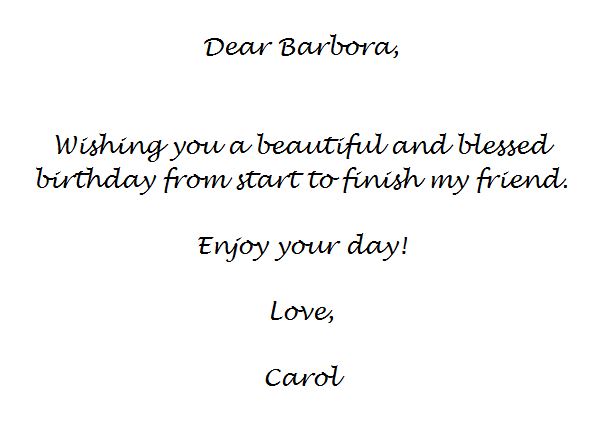 Dear Barbora,
Wishing you a beautiful and blessed
birthday from start to finish my friend.
Enjoy your day!
Love,
Carol